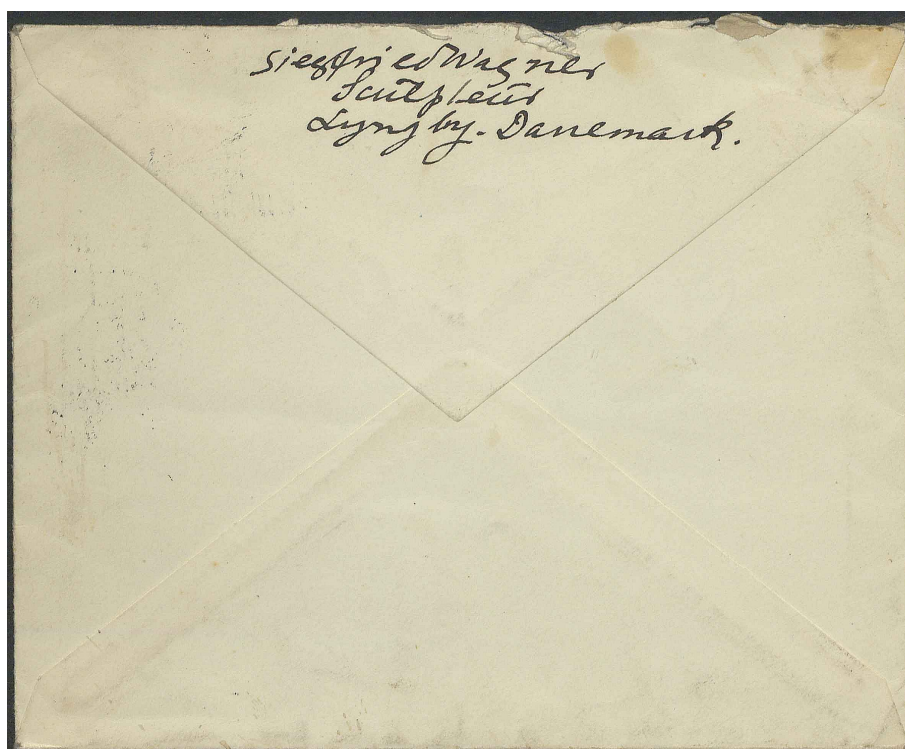 Siegfried Wagner
Sculpteur
Lyngby. Danemark.